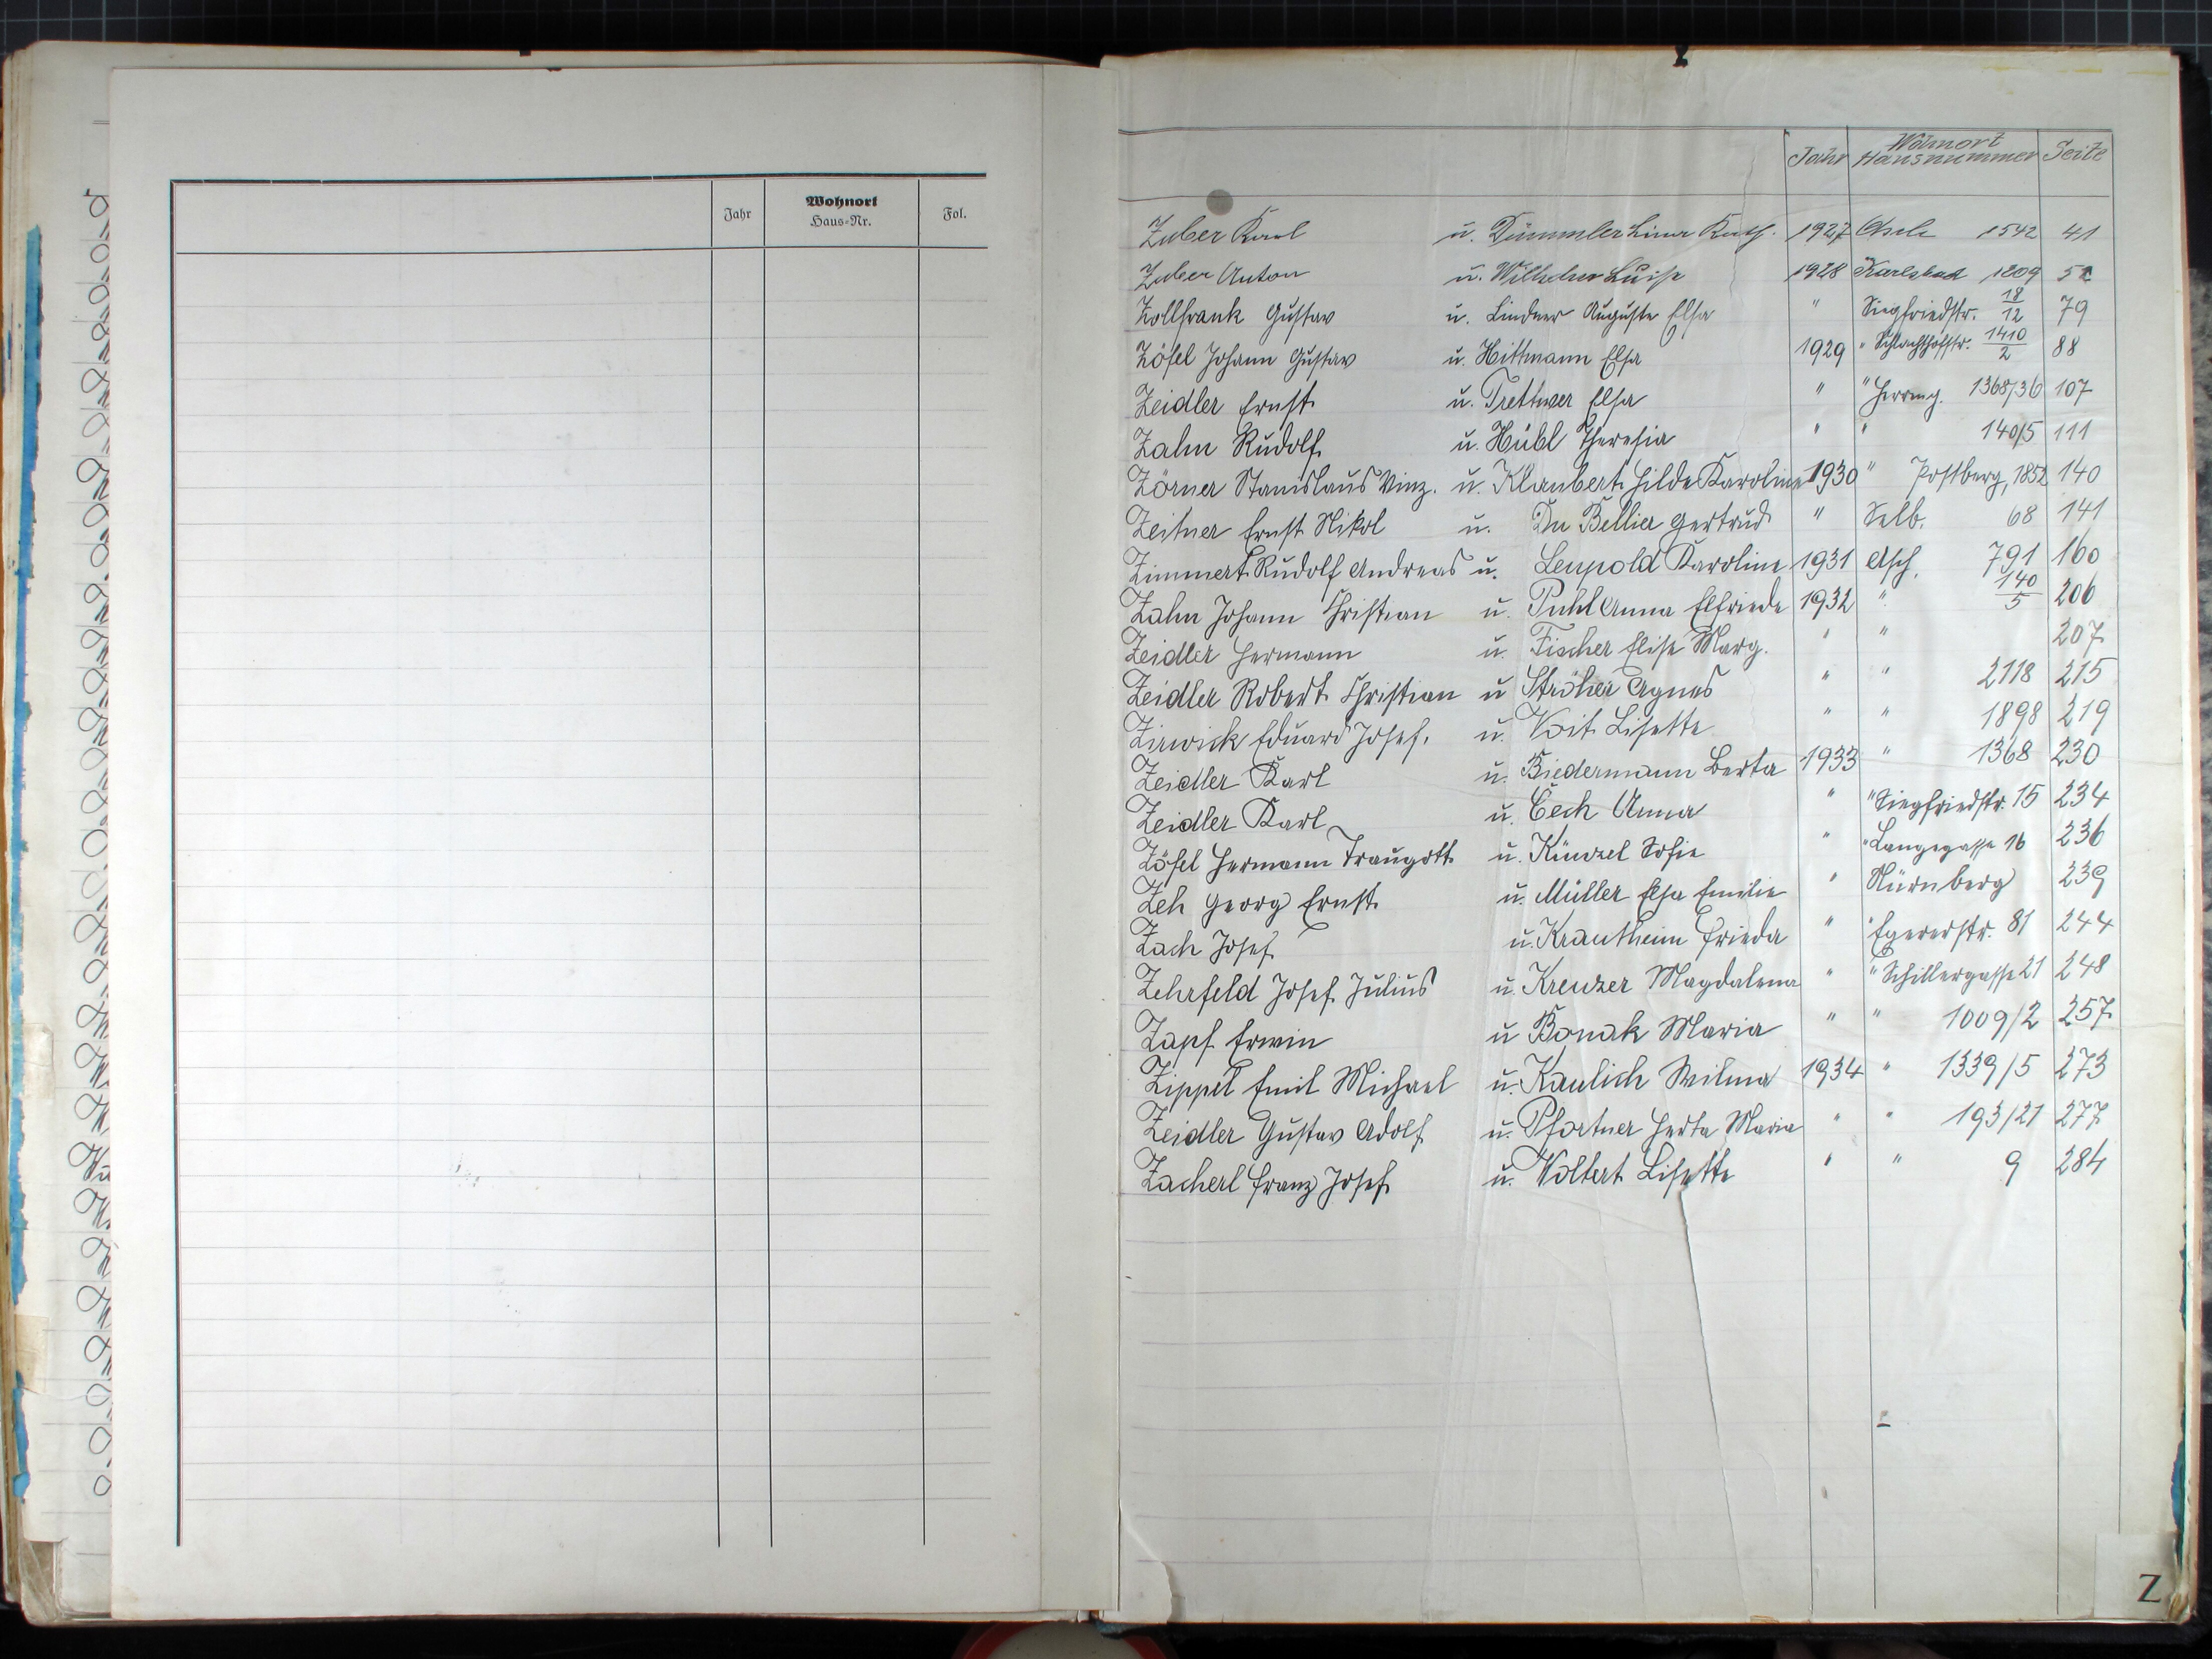 Jahr Wohnort Haus-Nr. Fol.
Jahr Wohnort Hausnummer Seite
Zuber Karl u. Dümmler Lina Kath. 1927 Asch 1542 41
Zuber Anton u. Wilhelm Luise 1928 Karlsbad 1209 52
Zollfrank Gustav u. Lindner Auguste Elsa " Siegfriedstr. 18/12 79
Zöfel Johann Gustav u. Hittmann Elsa 1929 " Schlachthofstr. 1410/2 88
Zeidler Ernst u. Trettwer Elsa " " Herrng. 1368/36 107
Zahn Rudolf u. Hübl Theresia " " 140/5 111
Zörner Stanislaus Vinz. u. Klaubert Hilde Karoline 1930 " Postberg, 1852 140
Zeitner Ernst Nikol u. Du Bellier Gertrud " Selb. 68 141
Zimmert Rudolf Andreas u. Leupold Karoline 1931 Asch. 791 160
Zahn Johann Christian u. Puhl Anna Elfriede 1932 " 140/5 206
Zeidler Hermann u. Fischer Elise Marg. " " 207
Zeidler Robert Christian u Ströher Agnes " " 2118 215
Zirwick Eduard Josef. u. Voit Lisette " " 1898 219
Zeidler Karl u. Biedermann Berta 1933 " 1368 230
Zeidler Karl u. Čech Anna " " Siegfriedstr. 15 234
Zöfel Hermann Traugott u. Künzel Sofie " " Langegasse 16 236
Zeh Georg Ernst u. Müller Elsa Emilie " Nürnberg 239
Zach Josef u. Krautheim Frieda " " Egererstr. 81 244
Zehrfeld Josef Julius u. Kreuzer Magdalena " " Schillergasse 21 248
Zapf Erwin u Bonak Maria " " 1009/2 257
Zippel Emil Michael u. Kaulich Wilma 1934 " 1339/5 273
Zeidler Gustav Adolf u. Pfortner Herta Maria " " 193/21 277
Zacherl Franz Josef u. Woltert Lisette " " 9 284
Z